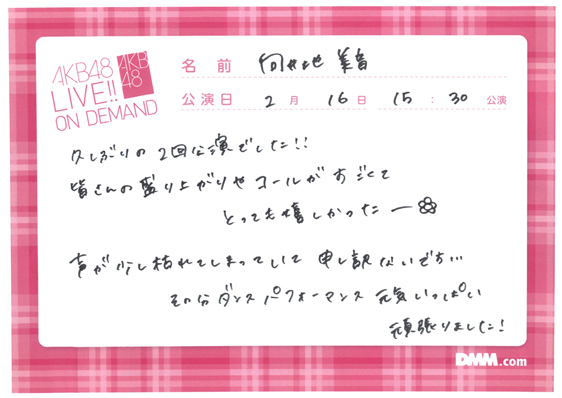 AKB48
LIVE!!
ON DEMAND
AKB
48
名前 向井地 美音
公演日 2月 16日 15:30 公演
久しぶりの2回公演でした!!
皆さんの盛り上がりやコールがすごくて
とっても嬉しかったー
声が少し枯れてしまっていて 申し訳ないです…
その分ダンスパフォーマンス 元気いっぱい
頑張りました!
DMM.com